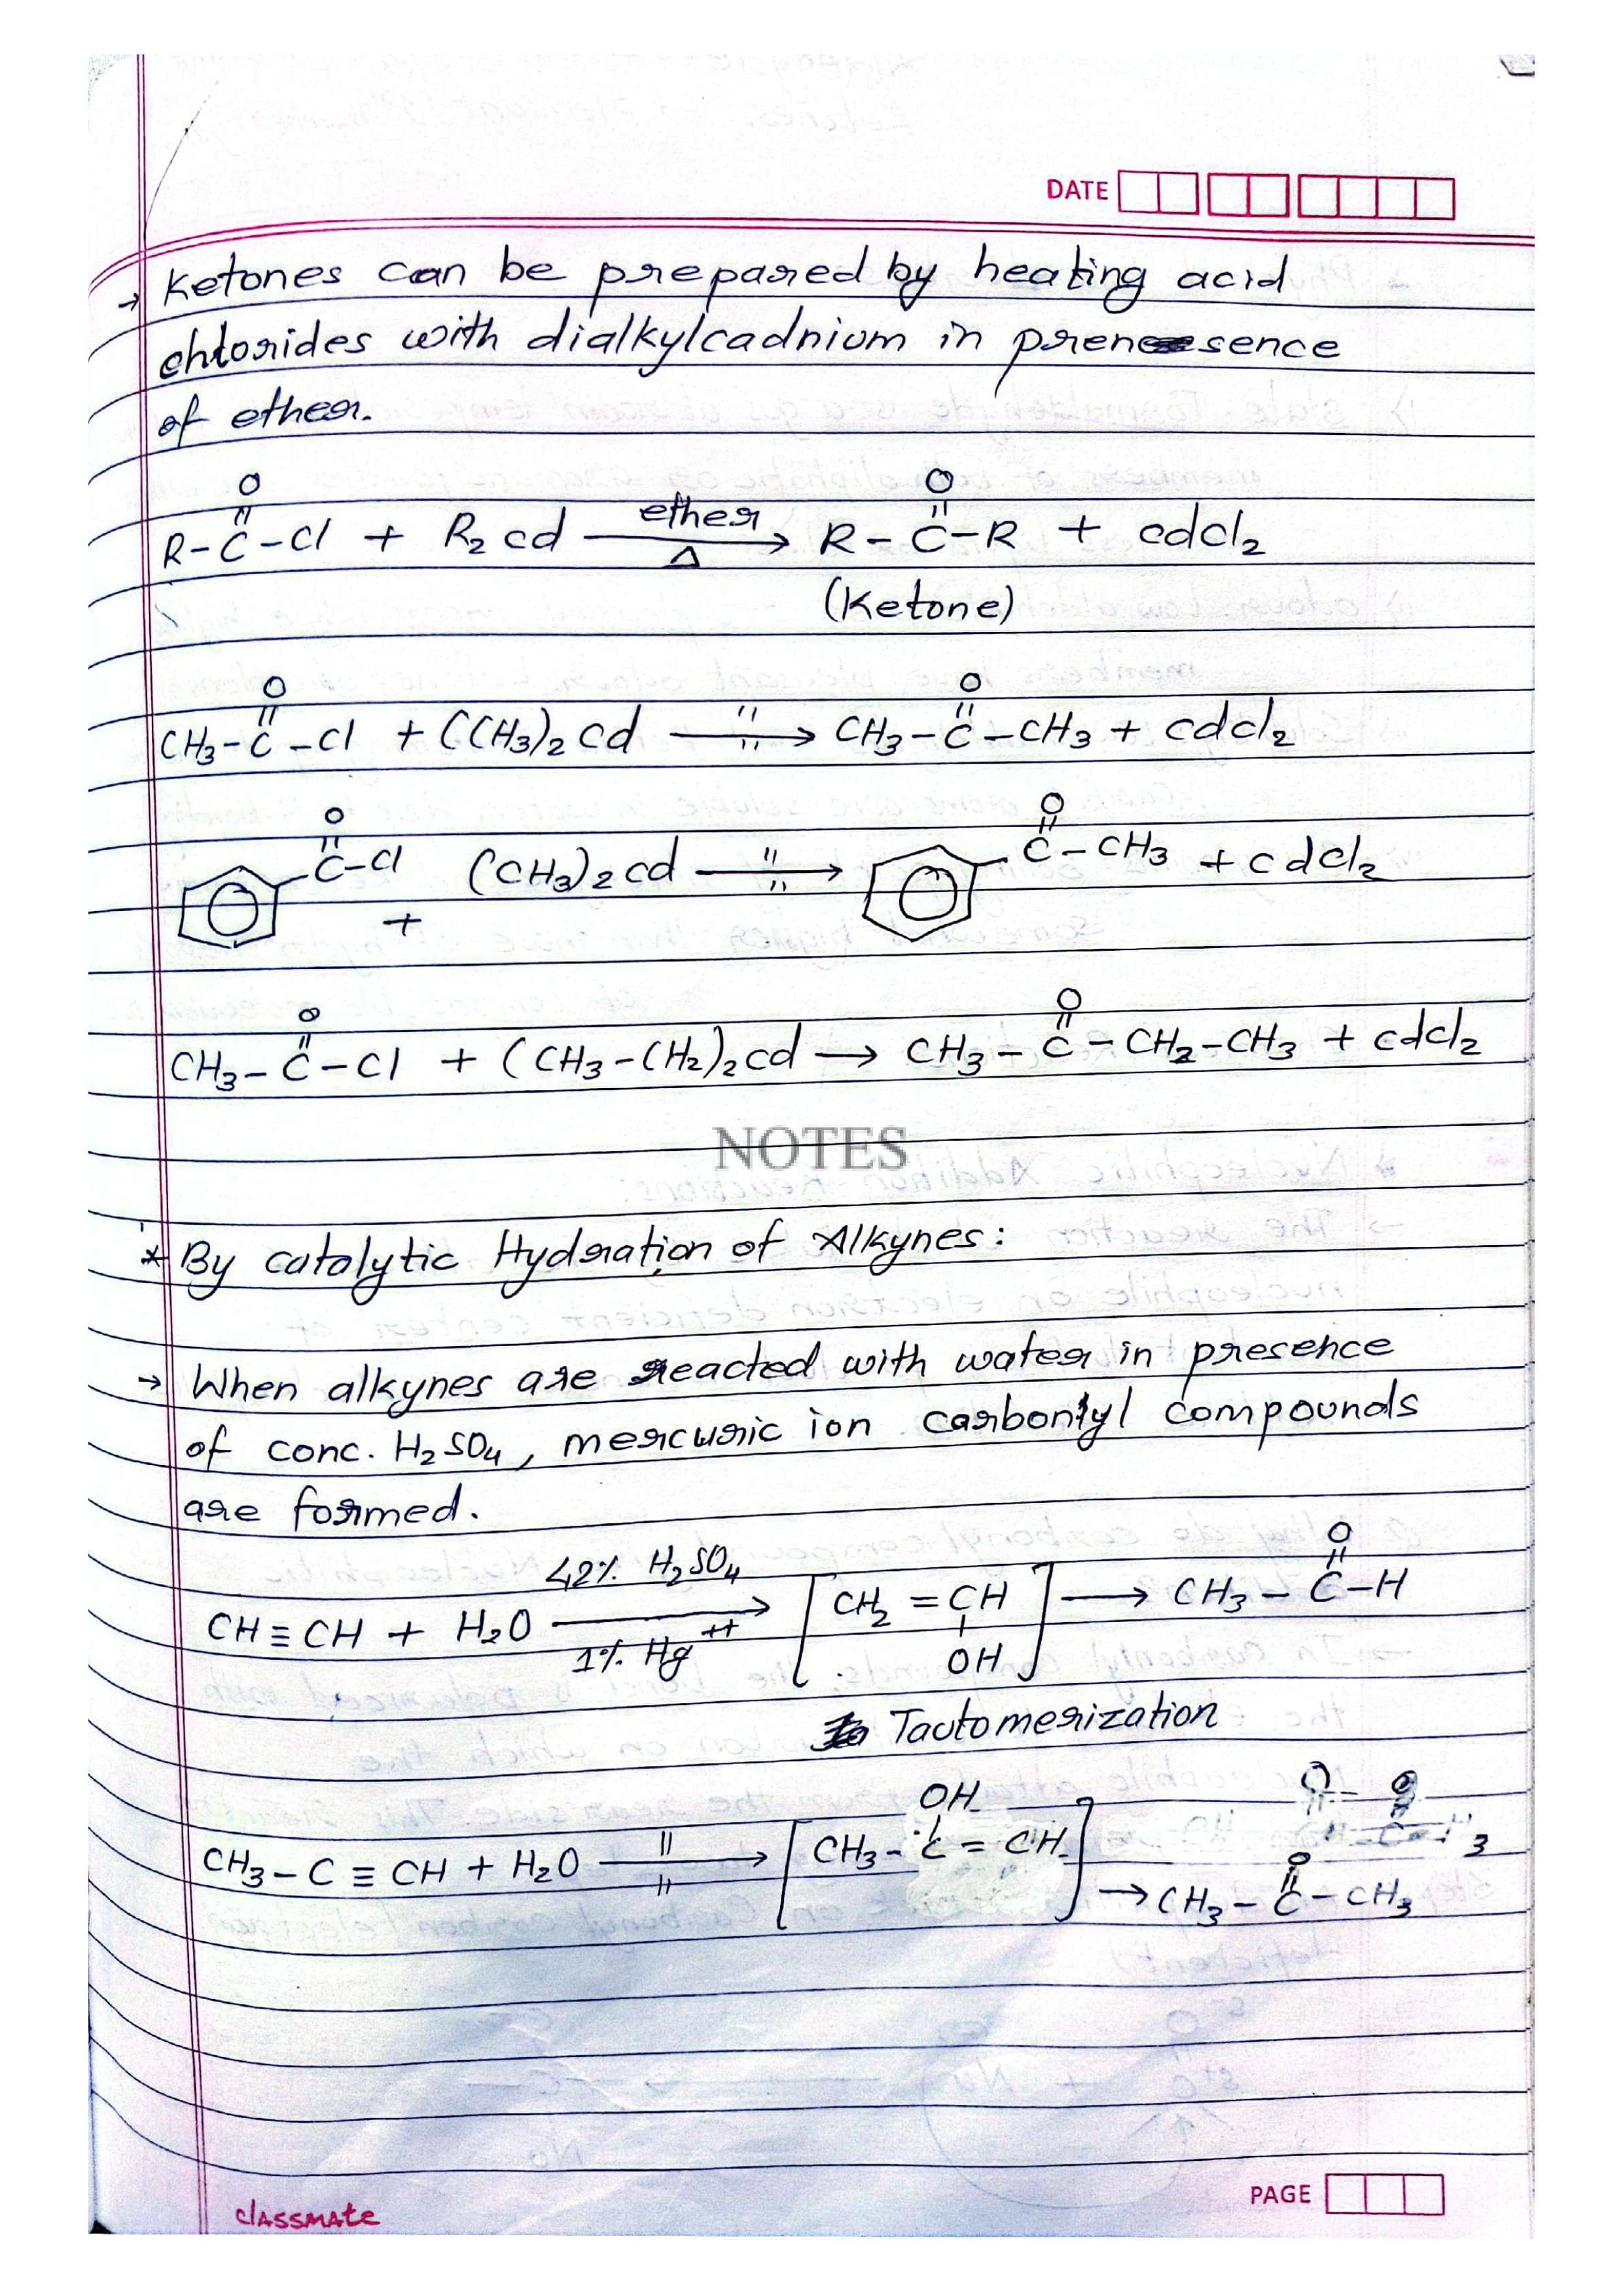 DATE
→ Ketones can be prepared by heating acid
chlorides with dialkylcadnium in prenesence
of ether.
O O
R-C-Cl + R2 cd ether Δ → R-C-R + cdcl2
(Ketone)
O O
CH3-C-Cl + (CH3)2 cd " " → CH3-C-CH3 + cdcl2
O O
C-Cl + (CH3)2 cd " " → C-CH3 + cdcl2
O O
CH3-C-Cl + (CH3-CH2)2cd → CH3-C-CH2-CH3 + cdcl2
NOTES
* By catalytic Hydration of Alkynes:
→ When alkynes are reacted with water in presence
of conc. H2SO4, mercuric ion carbonyl compounds
are formed.
42% H2SO4 O
CH≡CH + H2O → [CH2=CH] → CH3-C-H
1% Hg++ OH
Tautomerization
OH
CH3-C≡CH + H2O " " → [CH3-C=CH]
O
→ CH3-C-CH3
classmate
PAGE